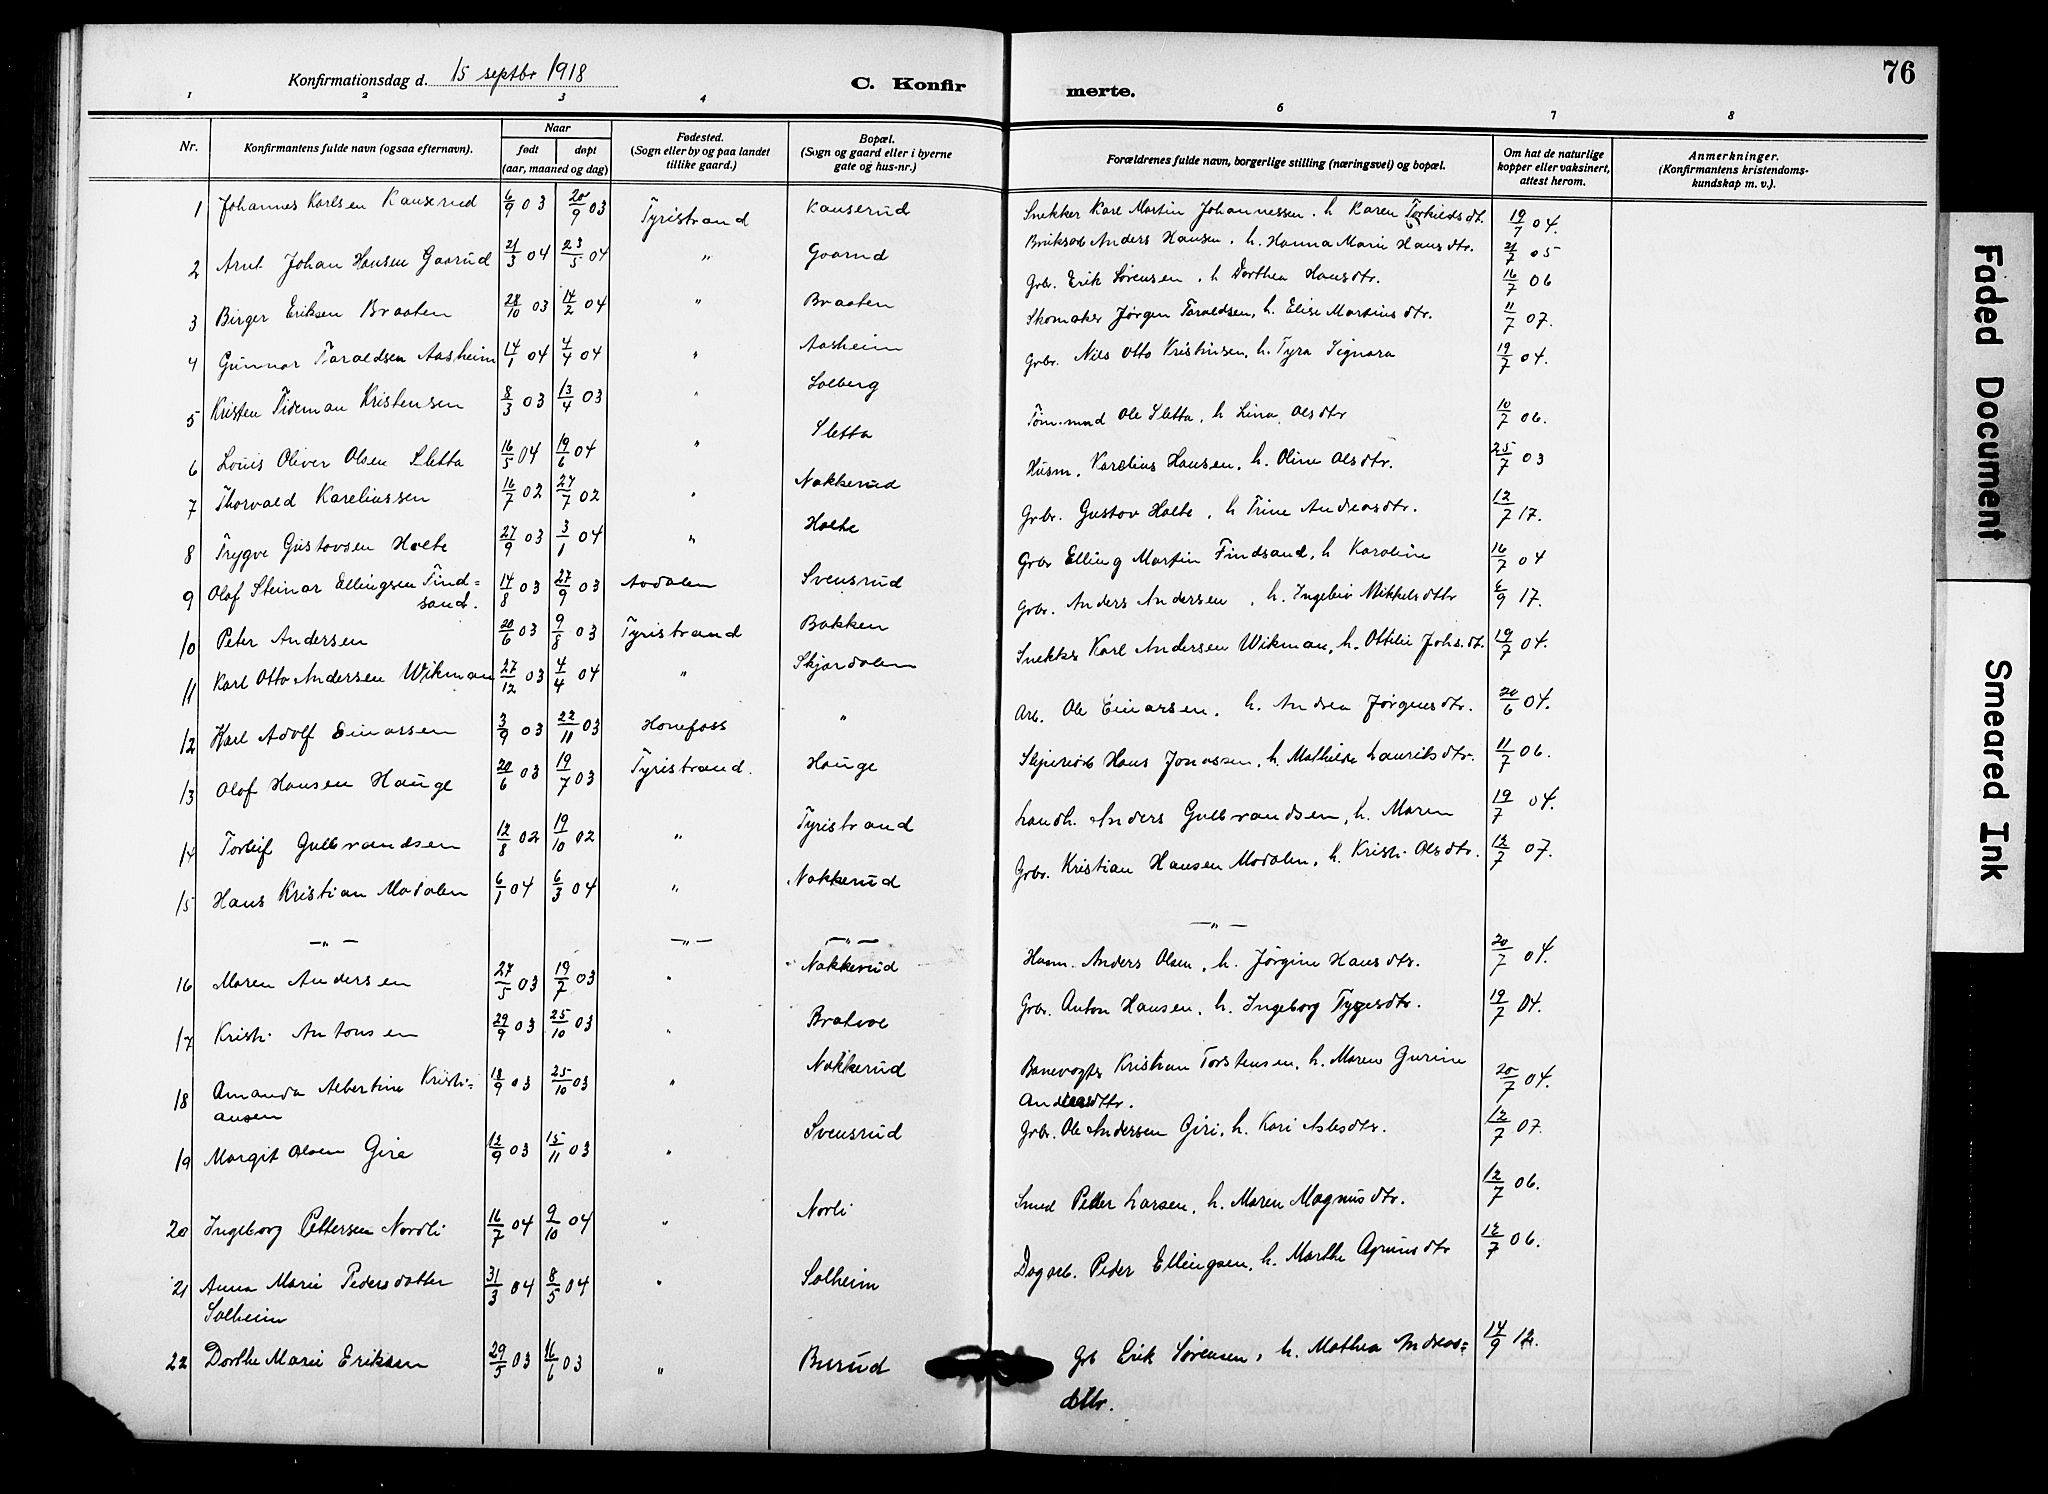 Konfirmationsdag d. 15 septbr 1918
C. Konfir merte.
76
1 2 3 4 6 7 8
Nr.
Konfirmantens fulde navn (ogsaa efternavn).
Naar
født døpt
(aar, maaned og dag)
Fødested.
(Sogn eller by og paa landet
tillike gaard.)
Bopæl.
(Sogn og gaard eller i byerne
gate og hus-nr.)
Forældrenes fulde navn, borgerlige stilling (næringsvei) og bopæl.
Om hat de naturlige
kopper eller vaksinert,
attest herom.
Anmerkninger.
(Konfirmantens kristendoms-
kundskap m. v.).
1 Johannes Karlsen Kauserud 6/9 03 20/9 03 Tyristrand Kauserud Snekker Karl Martin Johannessen, h. Karen Torkildsdt. 19/7 04.
2 Arnt Johan Hansen Gaarud 21/3 04 23/5 04 " Gaarud Bruksarb Anders Hansen, h. Hanna Marie Hansdtr. 21/7 05
3 Birger Eriksen Braaten 28/10 03 14/2 04 " Braaten Grbr. Erik Sørensen, h Dorthea Hansdtr. 16/7 06
4 Gunnar Taraldsen Aasheim 14/1 04 4/4 04 " Aasheim Skomaker Jørgen Taraldsen, h. Elise Martinsdtr. 11/7 07.
5 Kristen Tideman Kristensen 8/3 03 13/4 03 " Solberg Grbr. Nils Otto Kristinsen, h. Tyra Signora 19/7 04.
6 Louis Oliver Olsen Sletta 16/5 04 19/6 04 " Sletta Tøm.mnd Ole Sletta, h Lina Olsdtr 10/7 06.
7 Thorvald Kareliussen 16/7 02 27/7 02 " Nakkerud Husm. Karelius Hansen, h. Oline Olsdtr. 25/7 03
8 Trygve Gustavsen Holte 27/9 03 3/1 04 " Holte Grbr. Gustav Holte, h Trine Andersdtr. 12/7 17.
9 Olaf Steinar Ellingsen Find=
sand. 14/8 03 27/9 03 Aadalen Svensrud Grbr Elling Martin Findsand, h Karoline 16/7 04
10 Peter Andersen 20/6 03 9/8 03 Tyristrand Bakken Grbr. Anders Andersen, h. Ingebor Mikkelsdtr 6/9 17.
11 Karl Otto Andersen Wikman 27/12 03 4/4 04 " Skjærdalen Snekker Karl Andersen Wikman, h. Ottilie Johs.dt. 19/7 04.
12 Karl Adolf Einarsen 3/9 03 22/11 03 Hønefoss " Arb. Ole Einarsen, h. Andrea Jørgensdtr. 20/6 04.
13 Olaf Hansen Hauge 20/6 03 19/7 03 Tyristrand. Hauge Hans Jonassen, h. Mathilde Lauritsdtr. 11/7 06.
14 Torleif Gulbrandsen 12/8 02 19/10 02 " Tyristrand Landh. Anders Gulbrandsen, h. Maren 19/7 04.
15 Hans Kristian Modalen 6/1 04 6/3 04 " Nakkerud Grbr. Kristian Hansen Modalen, h. Kristi Olsdtr. 12/7 07.
—"— —"— —"— —"—
16 Maren Andersen 27/5 03 19/7 03 " Nakkerud Husm. Anders Olsen, h. Jørgine Hansdtr. 20/7 04.
17 Kristi Antonsen 29/9 03 25/10 03 " Grbr. Anton Hansen, h. Ingeborg Tygesdtr. 19/7 04.
18 Amanda Albertine Kristi=
ansen 18/9 03 25/10 03 " Nakkerud Banevogter Kristian Torstensen, h. Maren Gurine
Andersdtr. 20/7 04.
19 Margit Olsen Gire 12/9 03 15/11 03 " Svensrud Grbr. Ole Andersen Giri, h. Kari Aslesdtr. 12/7 07.
20 Ingeborg Pettersen Nordli 16/7 04 9/10 04 " Norli Smed Peder Larsen, h. Maren Magnusdtr. 12/7 06.
21 Anna Marie Pedersdatter
Solheim 31/3 04 8/5 04 " Solheim Dagarb. Peder Ellingsen, h. Marthe 12/7 06.
22 Dorthe Marie Eriksen 29/5 03 16/6 03 " Burud Grb Erik Sørensen, h. Mathea Andreas=
dttr. 14/9 12.
Faded Document
Smeared Ink